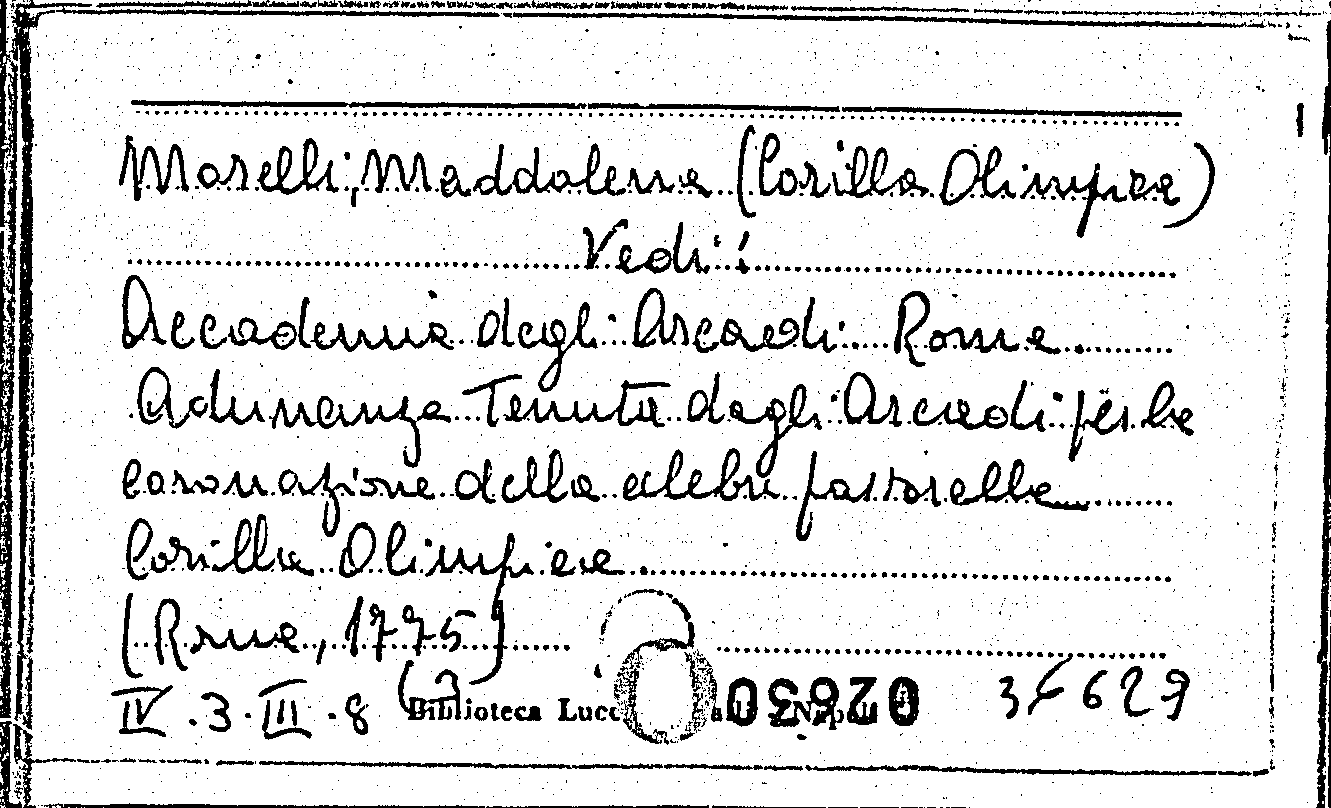 Morelli, Maddalena (Corilla Olimpica)
Vedi:
Accademia degli Arcadi. Roma.
Adunanza Tenuta dagli Arcadi per la
coronazione della celebre pastorella
Corilla Olimpica.
(Roma, 1775)
IV.3.III.8 (2
Biblioteca Lucc Napoli
629